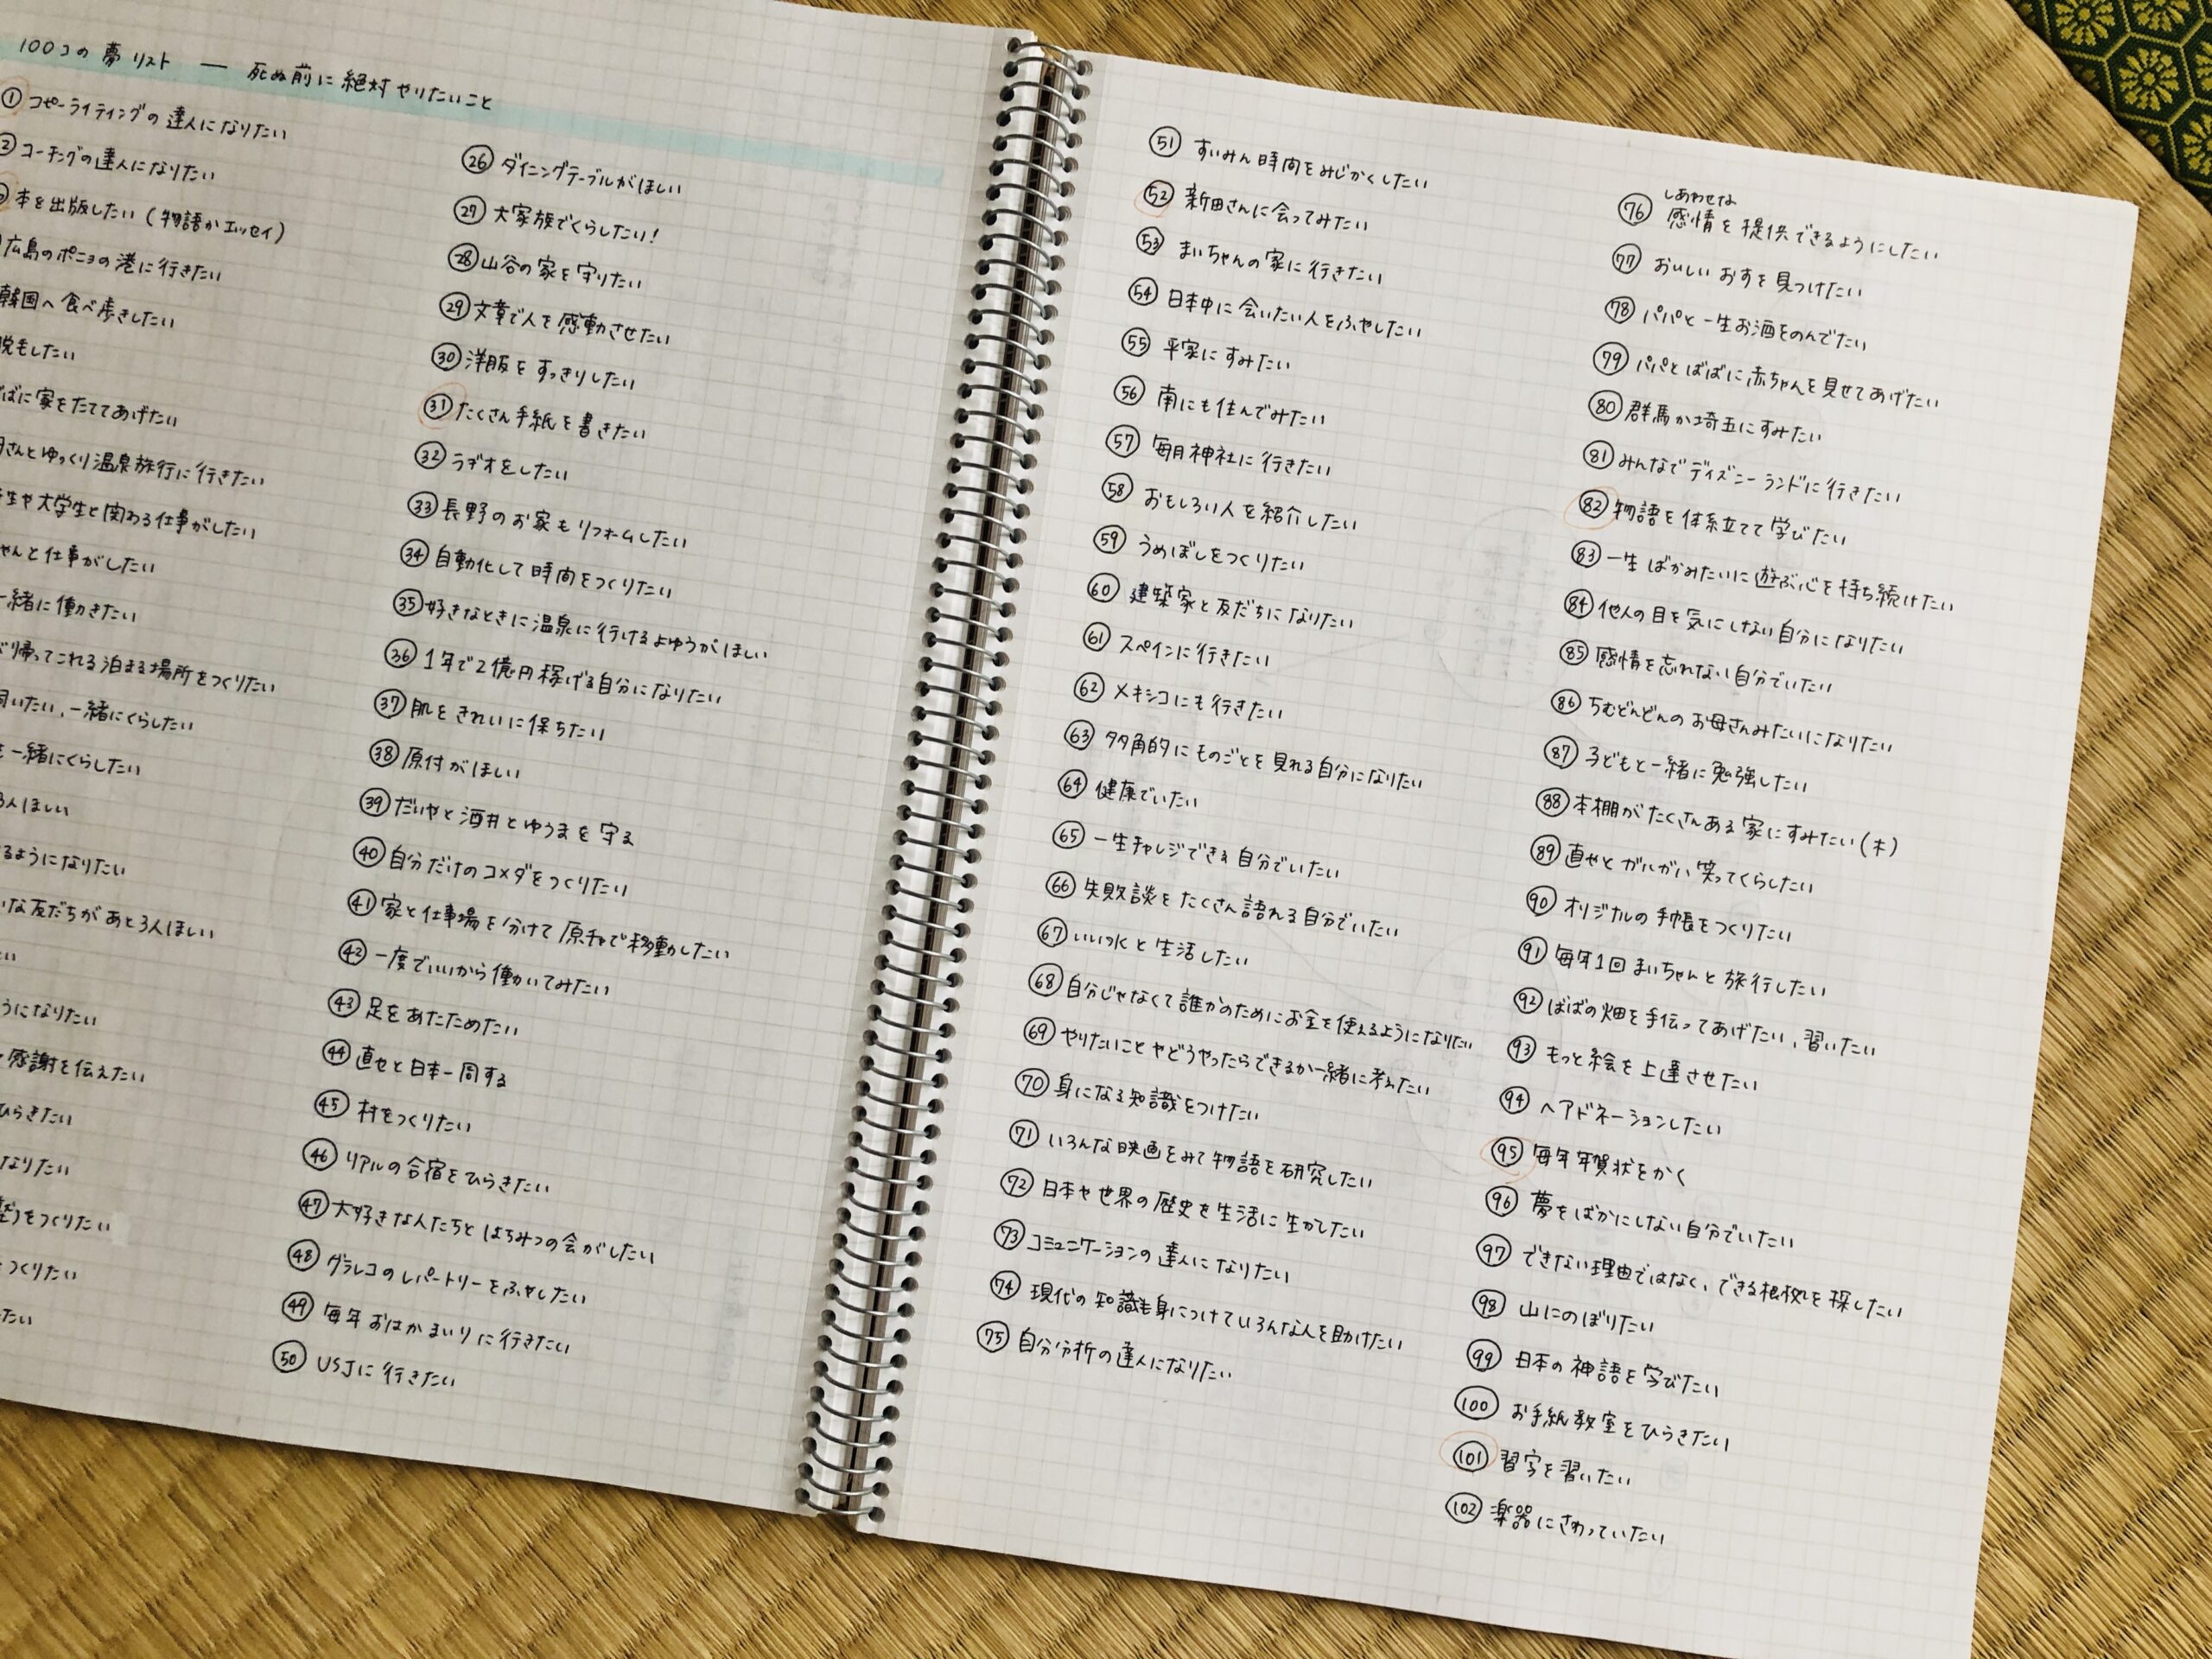 100コの夢リスト ― 死ぬ前に絶対やりたいこと
① コピーライティングの達人になりたい
② コーチングの達人になりたい
本を出版したい（物語かエッセイ）
広島のポニョの港に行きたい
韓国へ食べ歩きしたい
脱毛したい
ばばに家をたててあげたい
さんとゆっくり温泉旅行に行きたい
生や大学生と関わる仕事がしたい
ゃんと仕事がしたい
一緒に働きたい
帰ってこれる泊まる場所をつくりたい
飼いたい、一緒にくらしたい
一緒にくらしたい
3人ほしい
るようになりたい
いな友だちがあと3人ほしい
い
うになりたい
感謝を伝えたい
ひらきたい
なりたい
をつくりたい
つくりたい
たい
㉖ ダイニングテーブルがほしい
㉗ 大家族でくらしたい！
㉘ 山谷の家を守りたい
㉙ 文章で人を感動させたい
㉚ 洋服をすっきりしたい
㉛ たくさん手紙を書きたい
㉜ ラヂオをしたい
㉝ 長野のお家もリフォームしたい
㉞ 自動化して時間をつくりたい
㉟ 好きなときに温泉に行けるよゆうがほしい
㊱ 1年で2億円稼げる自分になりたい
㊲ 肌をきれいに保ちたい
㊳ 原付がほしい
㊴ だいやと酒井とゆうまを守る
㊵ 自分だけのコメダをつくりたい
㊶ 家と仕事場を分けて原チャで移動したい
㊷ 一度でいいから働いてみたい
㊸ 足をあたためたい
㊹ 直せと日本一周する
㊺ 村をつくりたい
㊻ リアルの合宿をひらきたい
㊼ 大好きな人たちとはちみつの会がしたい
㊽ グラレコのレパートリーをふやしたい
㊾ 毎年おはかまいりに行きたい
㊿ USJに行きたい
51 すいみん時間をみじかくしたい
52 新田さんに会ってみたい
53 まいちゃんの家に行きたい
54 日本中に会いたい人をふやしたい
55 平家にすみたい
56 南にも住んでみたい
57 毎月神社に行きたい
58 おもしろい人を紹介したい
59 うめぼしをつくりたい
60 建築家と友だちになりたい
61 スペインに行きたい
62 メキシコにも行きたい
63 多角的にものごとを見れる自分になりたい
64 健康でいたい
65 一生チャレンジできる自分でいたい
66 失敗談をたくさん語れる自分でいたい
67 いい水と生活したい
68 自分じゃなくて誰かのためにお金を使えるようになりたい
69 やりたいことやどうやったらできるか一緒に考えたい
70 身になる知識をつけたい
71 いろんな映画をみて物語を研究したい
72 日本や世界の歴史を生活に生かしたい
73 コミュニケーションの達人になりたい
74 現代の知識も身につけていろんな人を助けたい
75 自分分析の達人になりたい
しあわせな
76 感情を提供できるようにしたい
77 おいしいおすを見つけたい
78 パパと一生お酒をのんでたい
79 パパとばばに赤ちゃんを見せてあげたい
80 群馬か埼玉にすみたい
81 みんなでディズニーランドに行きたい
82 物語を体系立てて学びたい
83 一生ばかみたいに遊ぶ心を持ち続けたい
84 他人の目を気にしない自分になりたい
85 感情を忘れない自分でいたい
86 ちむどんどんのお母さんみたいになりたい
87 子どもと一緒に勉強したい
88 本棚がたくさんある家にすみたい（木）
89 直せとガハガハ笑ってくらしたい
90 オリジナルの手帳をつくりたい
91 毎年1回まいちゃんと旅行したい
92 ばばの畑を手伝ってあげたい、習いたい
93 もっと絵を上達させたい
94 ヘアドネーションしたい
95 毎年年賀状をかく
96 夢をばかにしない自分でいたい
97 できない理由ではなく、できる根拠を探したい
98 山にのぼりたい
99 日本の神語を学びたい
100 お手紙教室をひらきたい
101 習字を習いたい
102 楽器にさわっていたい